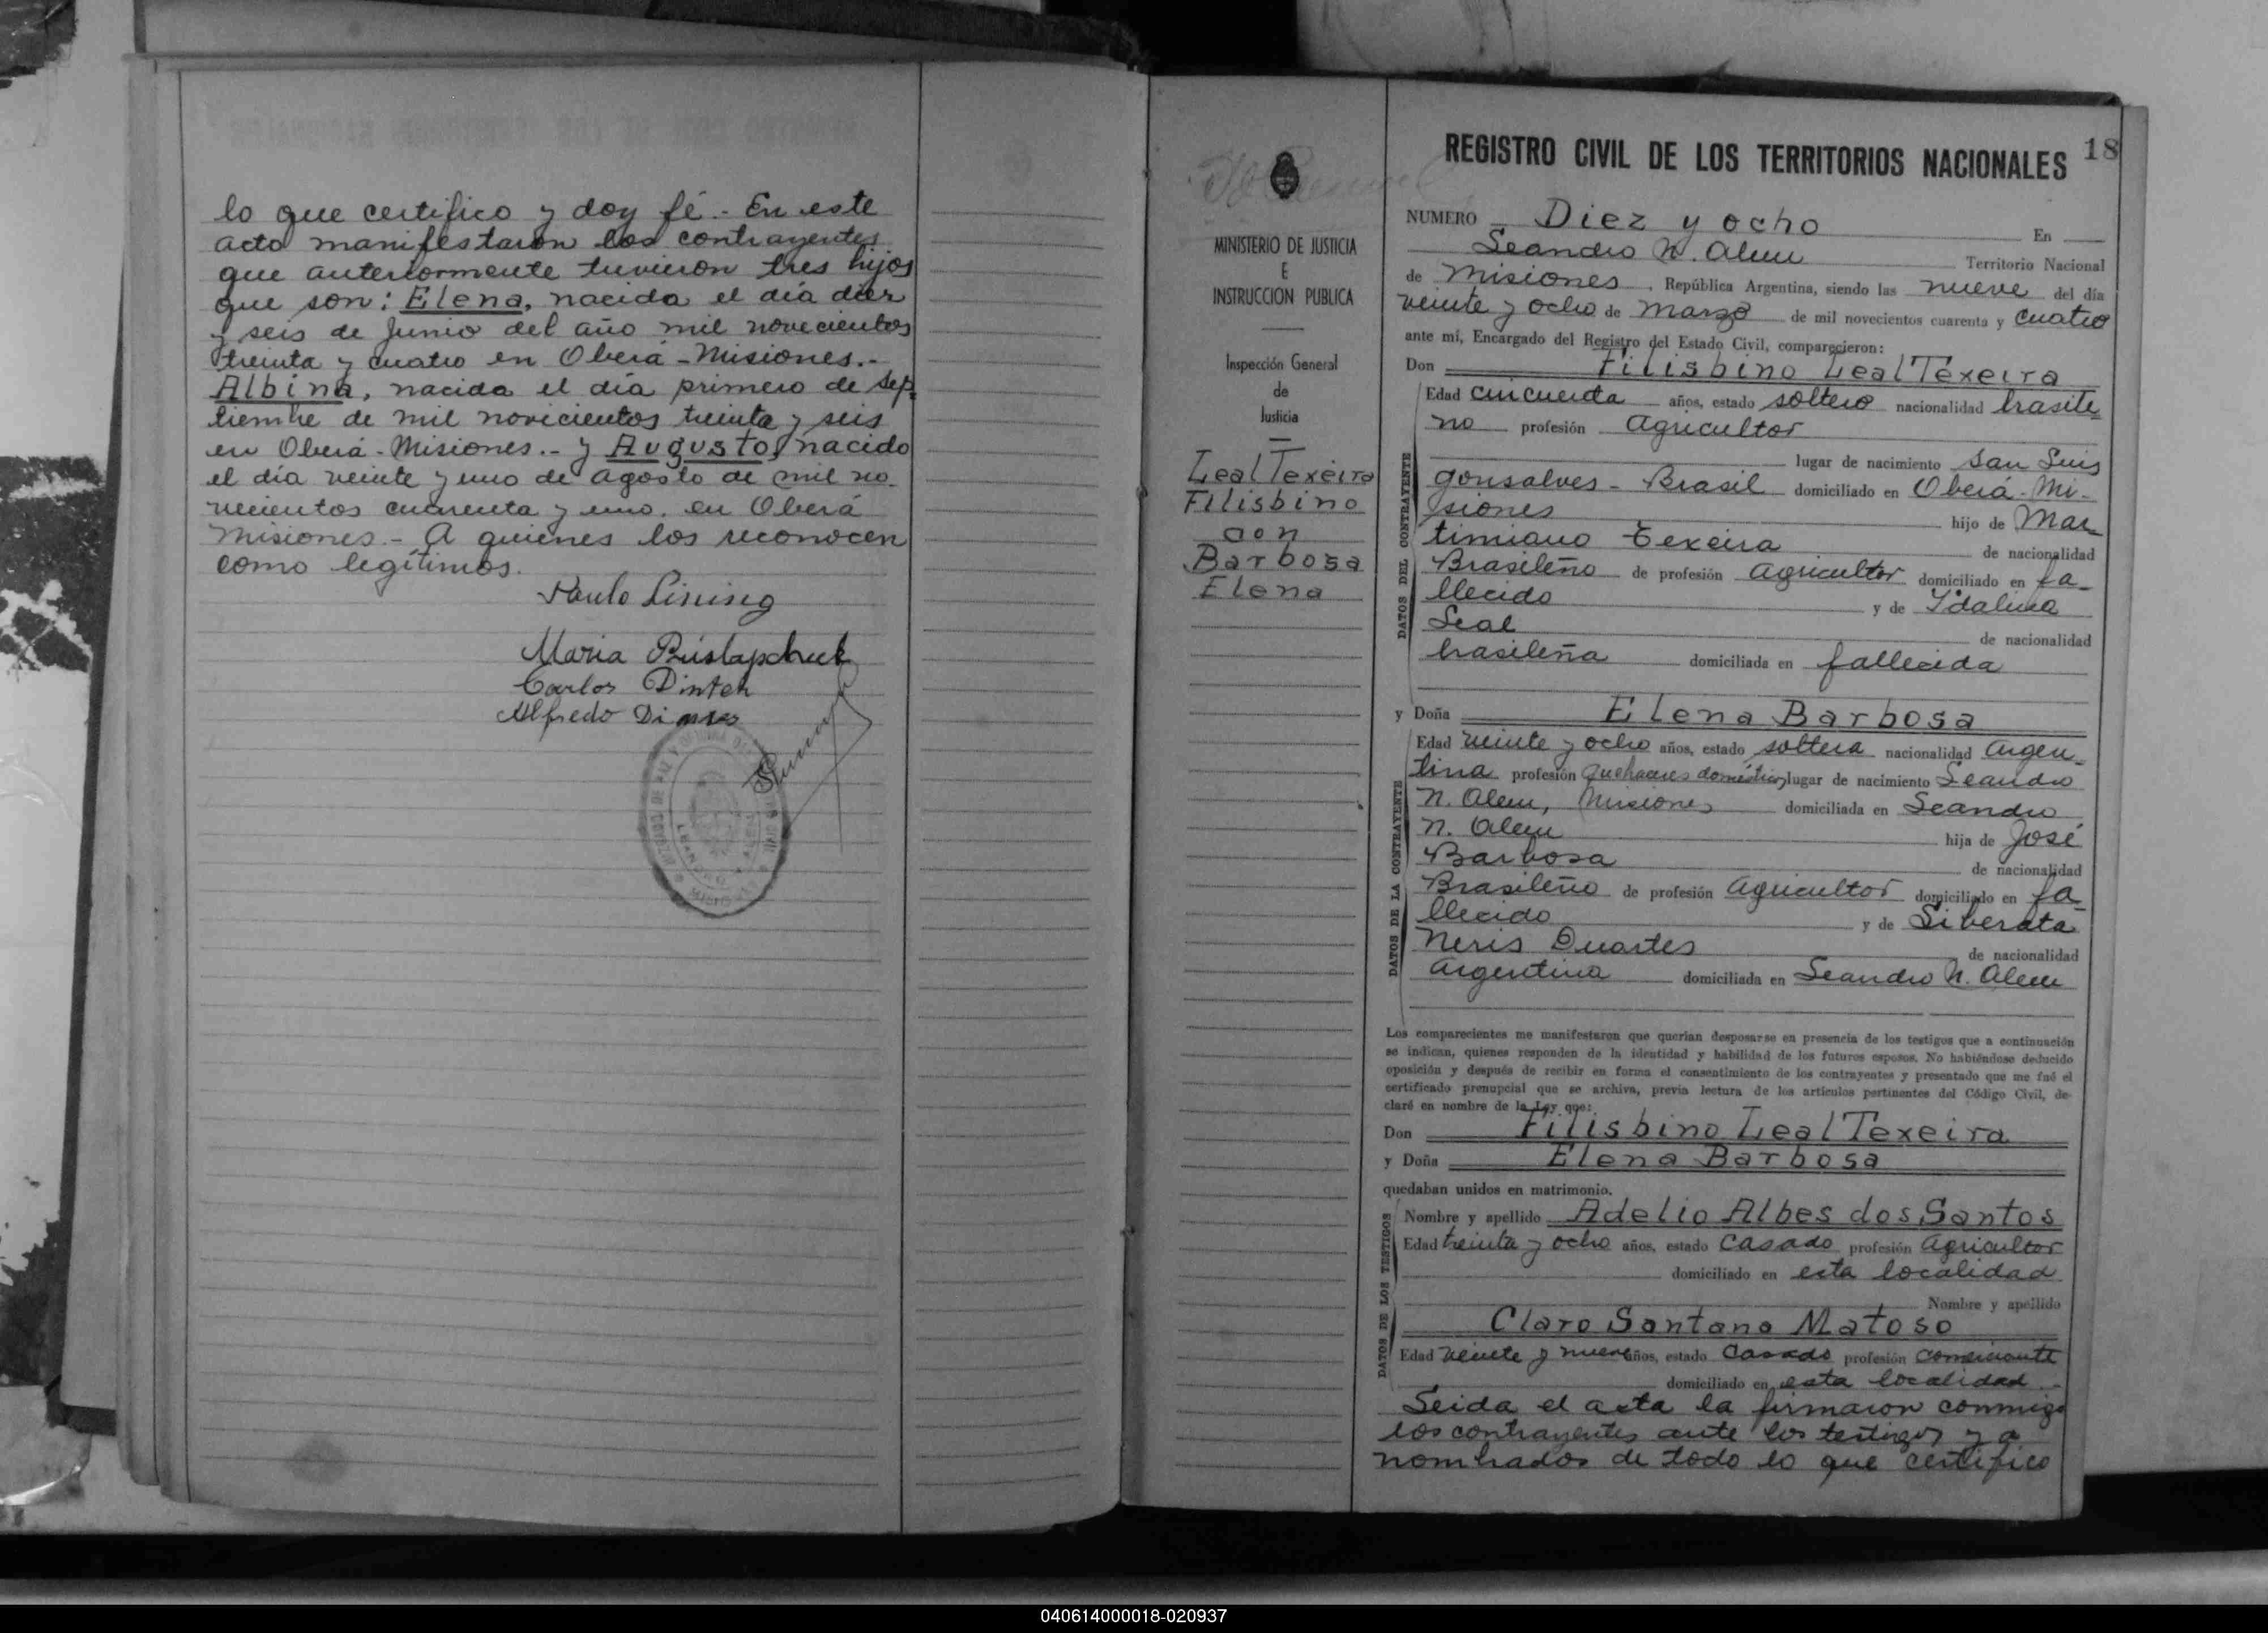 lo que certifico y doy fé.- En este
acto manifestaron los contrayentes
que anteriormente tuvieron tres hijos
que son: Elena, nacida el día diez
y seis de Junio del año mil novecientos
treinta y cuatro en Oberá-Misiones.-
Albina, nacida el día primero de sep
tiembre de mil novicientos treinta y seis
en Oberá-Misiones.- y Augusto, nacido
el día veinte y uno de Agosto de mil no-
vecientos cuarenta y uno. en Oberá
Misiones.- A quienes los reconocen
como legítimos.
Paulo Lining
Maria
Carlos Dinter
Alfredo
REGISTRO CIVIL DE LOS TERRITORIOS NACIONALES 18
MINISTERIO DE JUSTICIA
E
INSTRUCCION PUBLICA
Inspección General
de
Justicia
Leal Texeira
Filisbino
con
Barbosa
Elena
NUMERO Diez y ocho En
Leandro N. Alem Territorio Nacional
de Misiones, República Argentina, siendo las nueve del día
veinte y ocho de Marzo de mil novecientos cuarenta y cuatro
ante mí, Encargado del Registro del Estado Civil, comparecieron:
Don Filisbino Leal Texeira
DATOS DEL CONTRAYENTE
Edad cincuenta años, estado soltero nacionalidad brasile
no profesión Agricultor
lugar de nacimiento San Luis
gonsalves - Brasil domiciliado en Oberá-Mi-
siones hijo de Mar
timiano Texeira de nacionalidad
Brasileño de profesión Agricultor domiciliado en fa-
llecido y de Ydalina
Leal de nacionalidad
brasileña domiciliada en fallecida
y Doña Elena Barbosa
DATOS DE LA CONTRAYENTE
Edad veinte y ocho años, estado soltera nacionalidad Argen-
tina profesión quehaceres domésticos lugar de nacimiento Leandro
N. Alem, Misiones domiciliada en Leandro
N. Alem hija de José
Barbosa de nacionalidad
Brasileño de profesión Agricultor domiciliado en fa-
llecido y de Liberata
Neris Duartes de nacionalidad
Argentina domiciliada en Leandro N. Alem
Los comparecientes me manifestaron que querían desposarse en presencia de los testigos que a continuación
se indican, quienes responden de la identidad y habilidad de los futuros esposos. No habiéndose deducido
oposición y después de recibir en forma el consentimiento de los contrayentes y presentado que me fué el
certificado prenupcial que se archiva, previa lectura de los artículos pertinentes del Código Civil, de-
claré en nombre de la Ley que:
Don Filisbino Leal Texeira
y Doña Elena Barbosa
quedaban unidos en matrimonio.
DATOS DE LOS TESTIGOS
Nombre y apellido Adelio Albes dos Santos
Edad treinta y ocho años, estado Casado profesión Agricultor
domiciliado en esta localidad
Nombre y apellido
Claro Santana Matoso
Edad veinte y nueve años, estado Casado profesión comerciante
domiciliado en esta localidad.-
Leida el acta la firmaron conmigo
los contrayentes ante los testigos ya
nombrados de todo lo que certifico
040614000018-020937